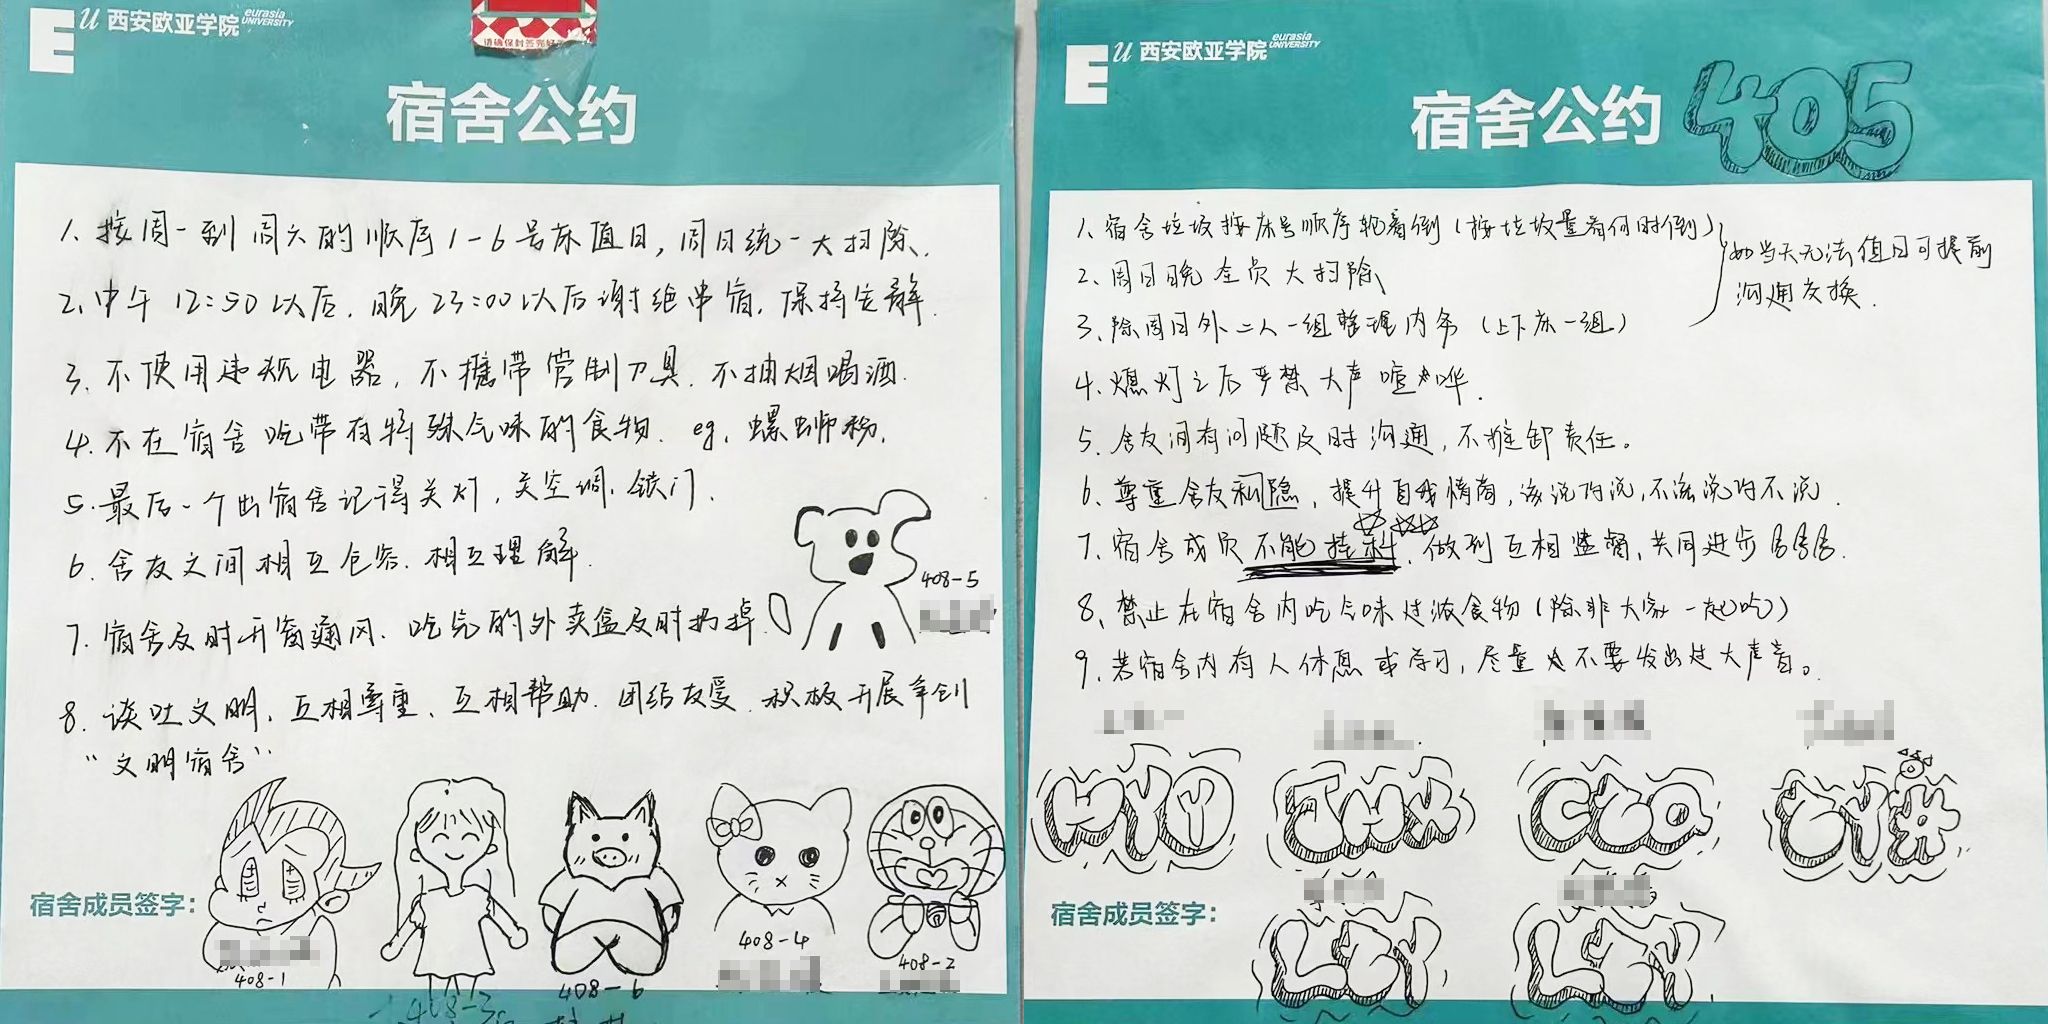 Eu 西安欧亚学院 eurasia UNIVERSITY
请确保封签完好
宿舍公约
1、按周一到周六的顺序1-6号床值日,周日统一大扫除、
2、中午12:50以后、晚23:00以后谢绝串宿、保持安静.
3、不使用违规电器,不携带管制刀具、不抽烟喝酒.
4、不在宿舍吃带有特殊气味的食物、eg、螺蛳粉、
5.最后一个出宿舍记得关灯,关空调、锁门.
6、舍友之间相互包容、相互理解.
7、宿舍及时开窗通风、吃完的外卖盒及时扔掉
8、谈吐文明、互相尊重、互相帮助、团结友爱、积极开展争创
“文明宿舍”
408-5
宿舍成员签字:
408-1
408-3
408-6
408-4
408-2
Eu 西安欧亚学院 eurasia UNIVERSITY
宿舍公约 405
1、宿舍垃圾按床号顺序轮着倒(按垃圾量看何时倒)
2、周日晚全员大扫除
3、除周日外二人一组整理内务(上下床一组)
如当天无法值日可提前
沟通交换.
4、熄灯之后严禁大声喧哗.
5、舍友间有问题及时沟通,不推卸责任。
6、尊重舍友私隐,提升自我情商,该说的说,不该说的不说.
7、宿舍成员不能挂科,做到互相监督,共同进步
8、禁止在宿舍内吃气味过浓食物(除非大家一起吃)
9、若宿舍内有人休息或学习,尽量不要发出过大声音。
HYY
JMX
CZQ
ZYH
宿舍成员签字:
LZY
LJY